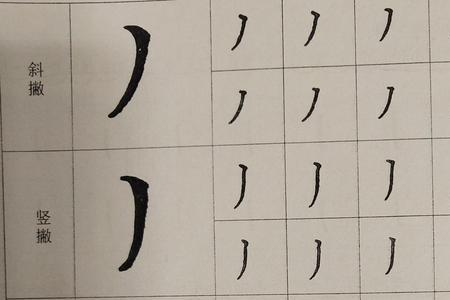 斜撇
丿 丿 丿 丿
丿 丿 丿
竖撇
丿 丿 丿 丿
丿 丿 丿